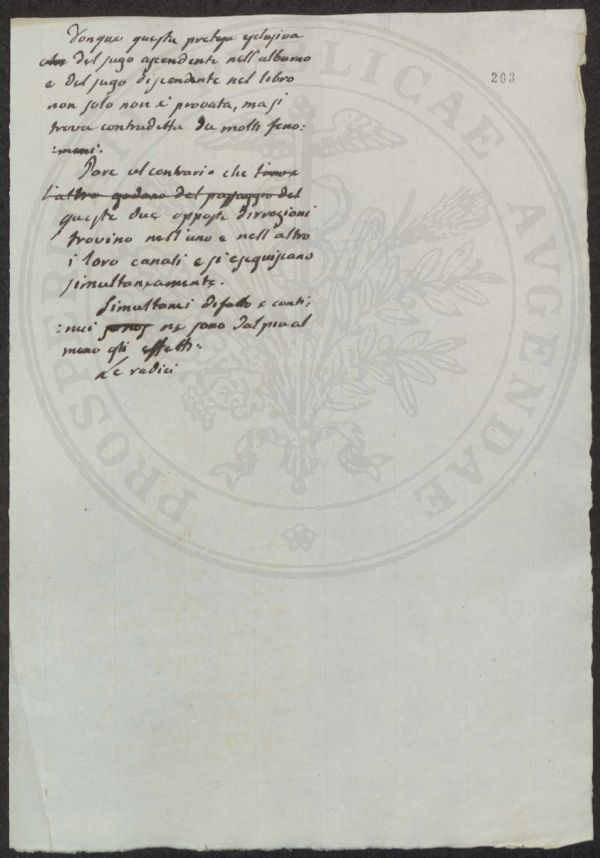 Donque questa pretesa esclusiva
che del sugo ascendente nell'alburno
e del sugo discendente nel libro
non solo non è provata, ma si
trova contradetta da molti feno:
:meni.
Pare al contrario che l'uno e
l'altro godano del passaggio del
queste due opposte dirrezioni
trovino nell'uno e nell'altro
i loro canali e si eseguiscano
simultaneamente.
Simultanei difatto e conti:
:nui sonos ne sono dal piu al
meno gli effetti.
Le radici
203
PROSPERITATI PUBLICAE AUGENDAE